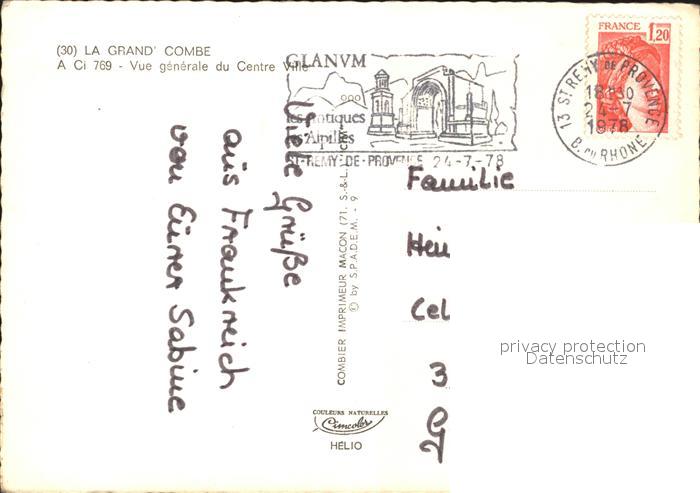 (30) LA GRAND' COMBE
A Ci 769 - Vue générale du Centre Ville
GLANVM
les Antiques
les Alpilles
ST-REMY-DE-PROVENCE 24-7-78
FRANCE 1,20
13 ST REMY DE PROVENCE
18H30
24-7
1978
B. DU RHONE
Viele Grüße
aus Frankreich
von Eurer Sabine
COMBIER IMPRIMEUR MACON (71. S.-&-L. CIM
© by S.P.A.D.E.M. - 9
Familie
Hei
Cel
3
G
privacy protection
Datenschutz
COULEURS NATURELLES
Cimcolor
HÉLIO